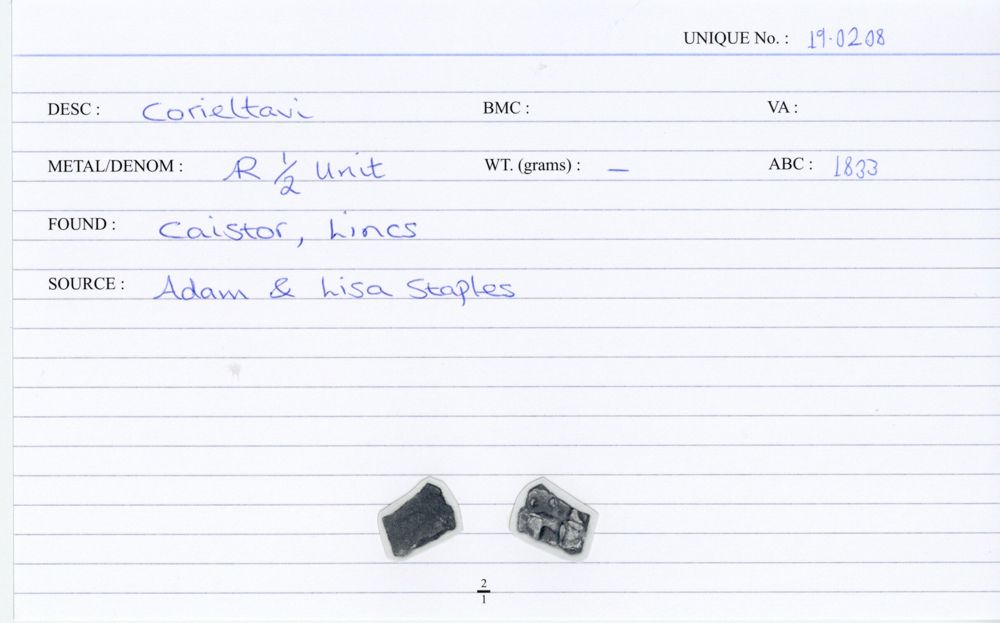 UNIQUE No. : 19·0208
DESC : Corieltavi BMC : VA :
METAL/DENOM : R ½ Unit WT. (grams) : — ABC : 1833
FOUND : Caistor, Lincs
SOURCE : Adam & Lisa Staples
2
1